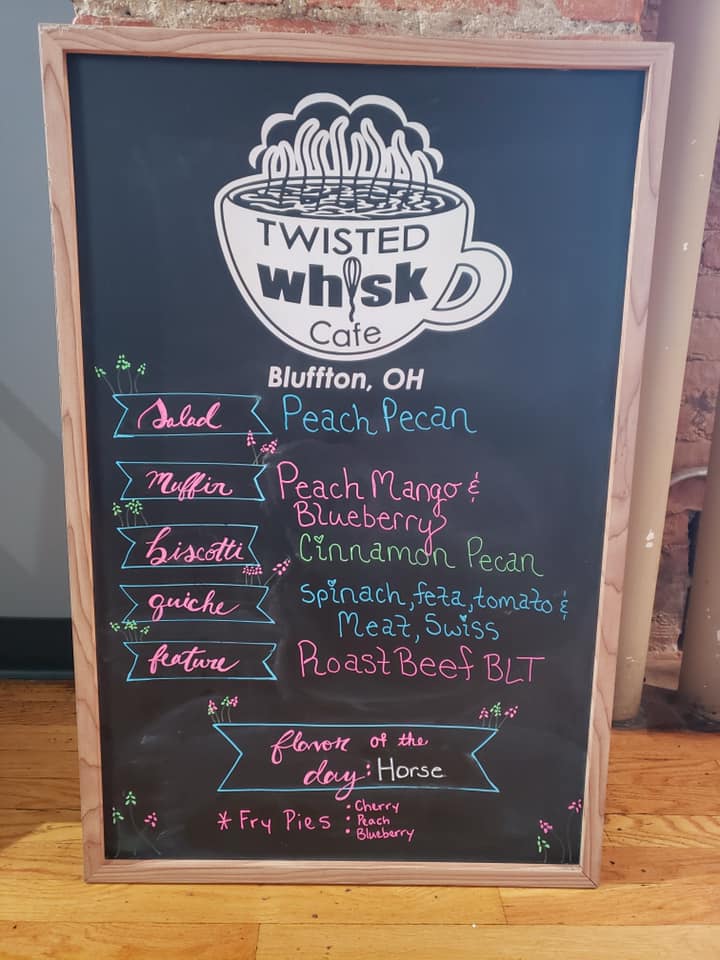 TWISTED
whisk
Cafe
Bluffton, OH
Salad Peach Pecan
Muffin Peach Mango &
Blueberry
biscotti Cinnamon Pecan
quiche spinach, feta, tomato &
Meat, Swiss
feature Roast Beef BLT
flavor of the
day: Horse
* Fry Pies : • Cherry
• Peach
• Blueberry